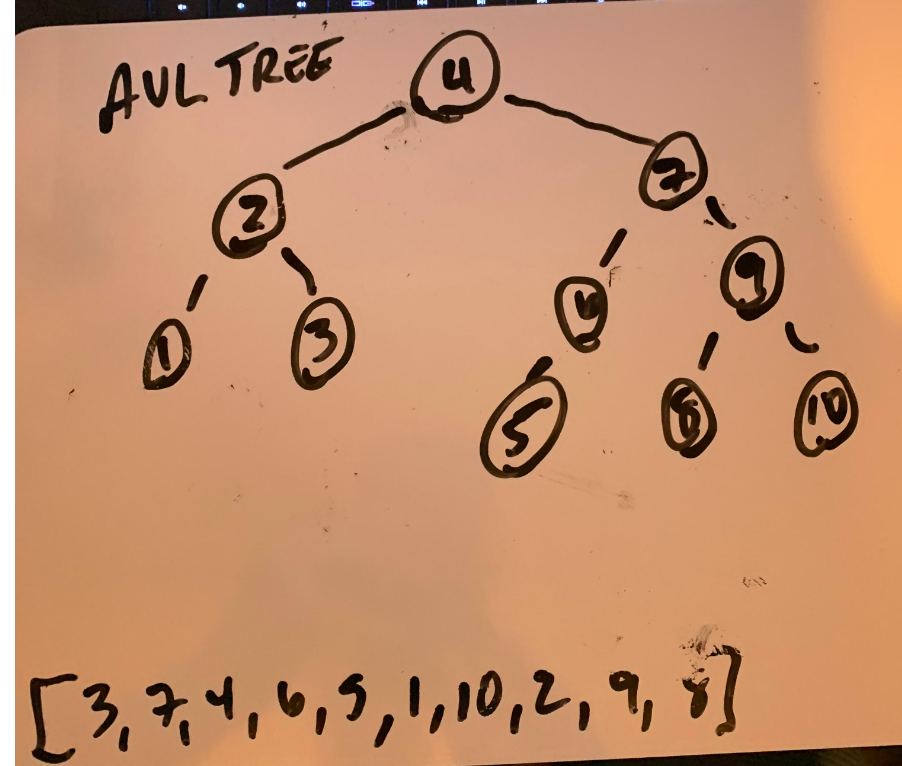 AVL TREE
4
2 7
1 3 6 9
5 8 10
[3,7,4,6,5,1,10,2,9,8]